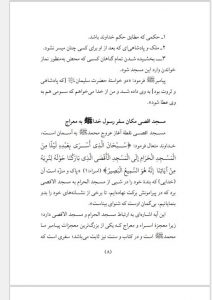 ۱ـ حکمی که مطابق حکم خداوند باشد.
۲ـ ملک و پادشاهی‌ای که بعد از او برای کسی چنان میسر نشود.
۳ـ بخشیده شدن تمام گناهان کسی که محض به‌منظور نماز
خواندن وارد این مسجد شود.
پیامبر ﷺ فرمود: «دو خواستهٔ حضرت سلیمان (که پادشاهی
و ثروت بود) به وی داده شد و من از خدا می‌خواهم که سومی هم به
وی عطا شود».
مسجد اقصی مکان سفر رسول خدا ﷺ به معراج
مسجد اقصی نقطهٔ آغاز عروج محمد ﷺ به آسمان است،
خداوند متعال فرمود: ﴿سُبْحَانَ الَّذِي أَسْرَى بِعَبْدِهِ لَيْلًا مِنَ
الْمَسْجِدِ الْحَرَامِ إِلَى الْمَسْجِدِ الْأَقْصَى الَّذِي بَارَكْنَا حَوْلَهُ لِنُرِيَهُ
مِنْ آيَاتِنَا إِنَّهُ هُوَ السَّمِيعُ الْبَصِيرُ﴾ (اسراء:۱) «پاک و منزه است آن
(خدایی) که بندهٔ خود را در شبی از مسجد الحرام به مسجد الاقصی
که در پیرامونش برکت نهاده‌ایم، تا برخی از نشانه‌های خود را به او
بنمایانیم، بی‌گمان اوست که شنوای بیناست».
این آیه اشاره‌ای به ارتباط مسجد الحرام و مسجد الاقصی دارد؛
زیرا معجزهٔ اسراء و معراج که یکی از بزرگ‌ترین معجزات پیامبر ما
محمد ﷺ است و در کتاب و سنت نیز ثابت می‌باشد؛ سفری است که
(۸)